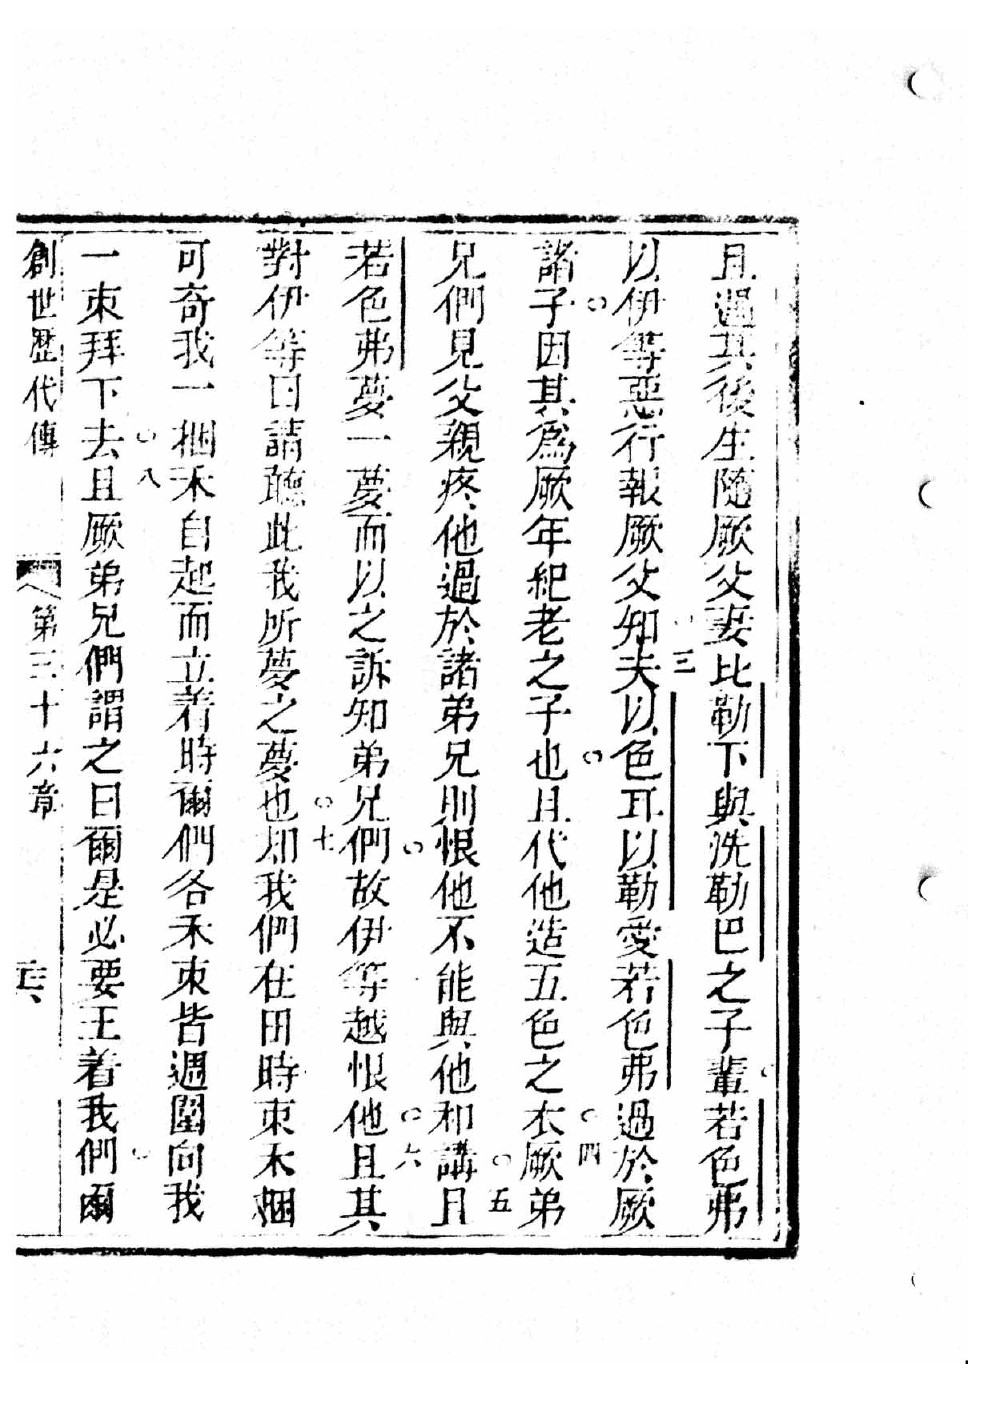 且過其後生隨厥父妻比勒下與洗勒巴之子輩。若色弗
以伊等惡行報厥父知。三夫以色耳以勒愛若色弗過於厥
諸子。因其爲厥年紀老之子也。且代他造五色之衣。四厥弟
兄們見父親疼他過於諸弟兄則恨他。不能與他和講。五且
若色弗夢一夢而以之訴知弟兄們故伊等越恨他。六且其
對伊等曰請聽此我所夢之夢也。七却我們在田時束禾捆
可奇我一捆禾自起而立着時爾們各禾束皆週圍向我
一束拜下去。八且厥弟兄們謂之曰爾是必要王着我們。爾
創世歷代傳 第三十六章